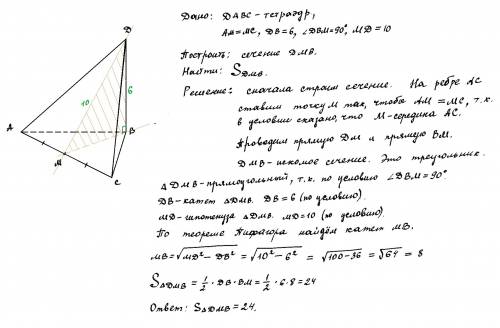 D
10
6
A
B
M
C
Дано: DABC - тетраэдр,
AM=MC, DB=6, ∠DBM=90°, MD=10
Построить: сечение DMB.
Найти: S_DMB.
Решение: сначала строим сечение. На ребре AC
ставим точку M так, чтобы AM=MC, т.к.
в условие сказано, что M-середина AC.
Проводим прямую DM и прямую BM.
DMB-искомое сечение. Это треугольник.
△DMB-прямоугольный, т.к. по условию ∠DBM=90°
DB-катет △DMB. DB=6 (по условию).
MD-гипотенуза △DMB. MD=10 (по условию).
По теореме Пифагора найдём катет MB.
MB=√(MD²-DB²) = √(10²-6²) = √(100-36) = √64 = 8
S△DMB = 1/2 · DB · BM = 1/2 · 6 · 8 = 24
Ответ: S△DMB = 24.